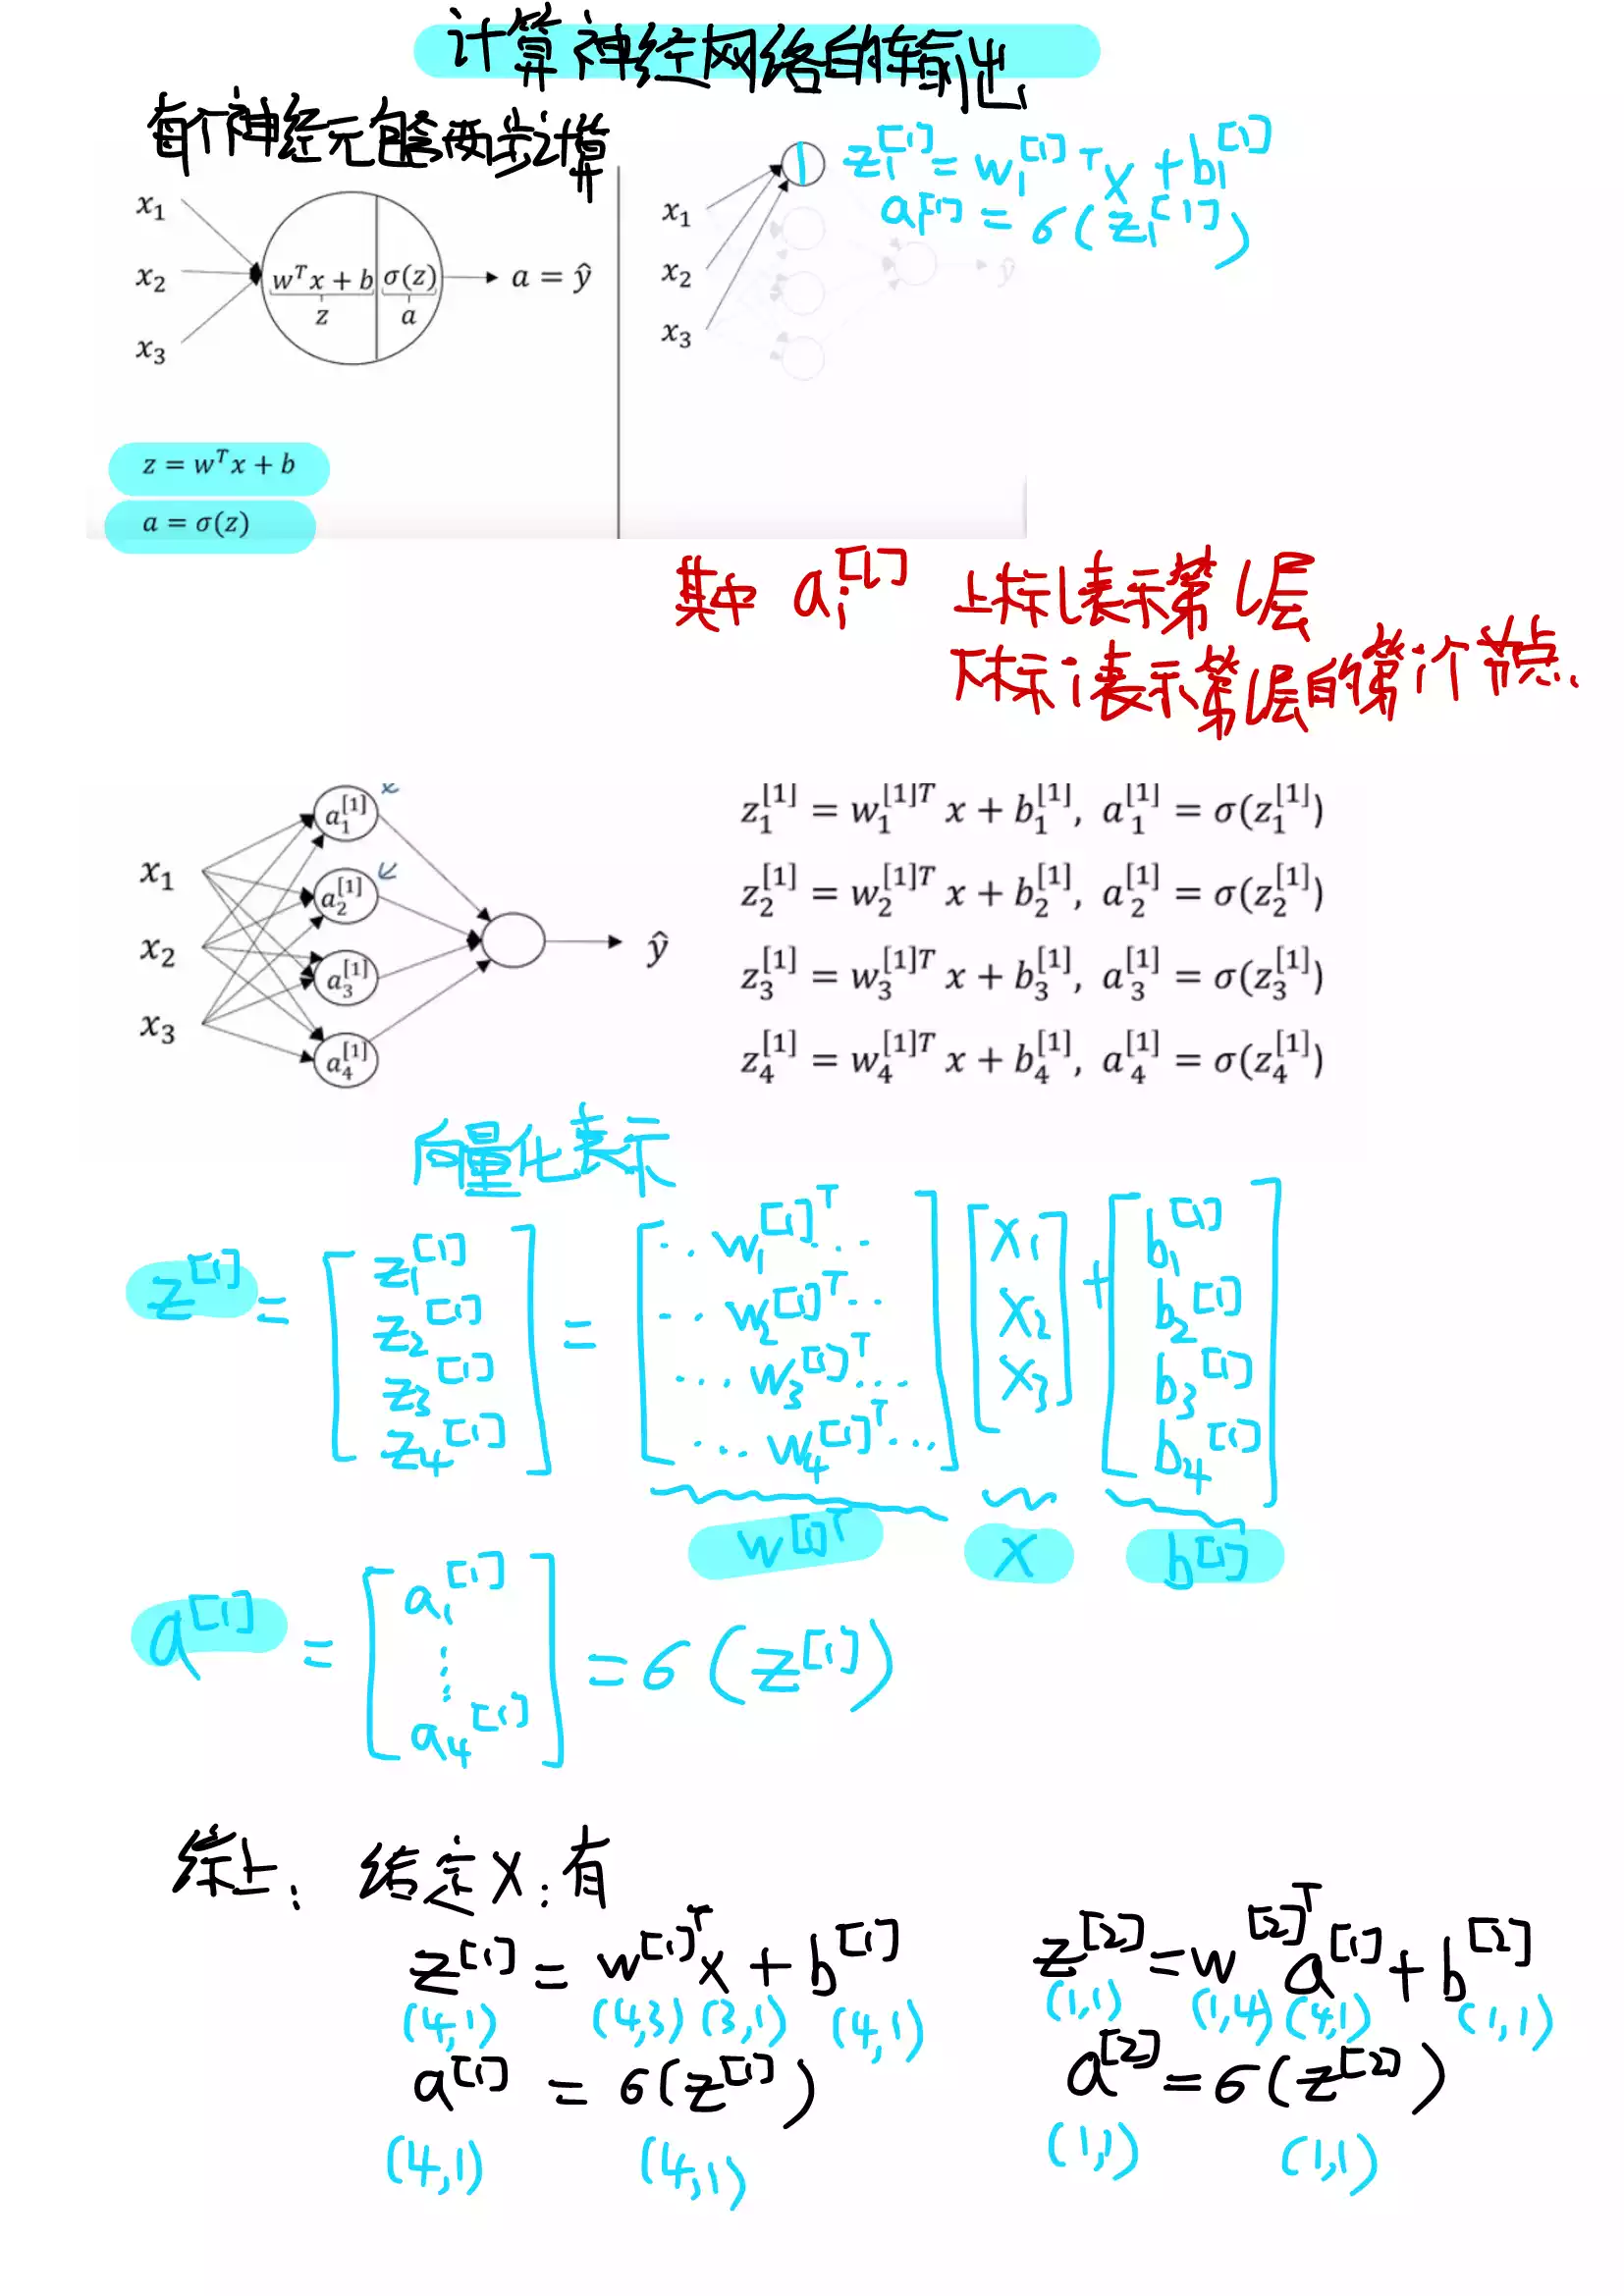 计算神经网络的输出
每个神经元包含两步计算
x₁
x₂
x₃
wᵀx + b
z
σ(z)
a
a = ŷ
z = wᵀx + b
a = σ(z)
x₁
x₂
x₃
ŷ
z₁^[1] = w₁^[1]ᵀ x + b₁^[1]
a₁^[1] = σ(z₁^[1])
其中 aᵢ^[l] 上标l表示第l层
下标i表示第l层的第i个节点.
x₁
x₂
x₃
a₁^[1]
a₂^[1]
a₃^[1]
a₄^[1]
ŷ
z₁^[1] = w₁^[1]ᵀ x + b₁^[1], a₁^[1] = σ(z₁^[1])
z₂^[1] = w₂^[1]ᵀ x + b₂^[1], a₂^[1] = σ(z₂^[1])
z₃^[1] = w₃^[1]ᵀ x + b₃^[1], a₃^[1] = σ(z₃^[1])
z₄^[1] = w₄^[1]ᵀ x + b₄^[1], a₄^[1] = σ(z₄^[1])
向量化表示
z^[1] = [z₁^[1] z₂^[1] z₃^[1] z₄^[1]] = [‥w₁^[1]ᵀ… ‥w₂^[1]ᵀ‥ …w₃^[1]ᵀ… …w₄^[1]ᵀ…] [x₁ x₂ x₃] + [b₁^[1] b₂^[1] b₃^[1] b₄^[1]]
w^[1]ᵀ x b^[1]
a^[1] = [a₁^[1] ⋮ a₄^[1]] = σ(z^[1])
综上: 给定x:有
z^[1] = w^[1]ᵀx + b^[1]
(4,1) (4,3) (3,1) (4,1)
a^[1] = σ(z^[1])
(4,1) (4,1)
z^[2] = w^[2]ᵀ a^[1] + b^[2]
(1,1) (1,4) (4,1) (1,1)
a^[2] = σ(z^[2])
(1,1) (1,1)